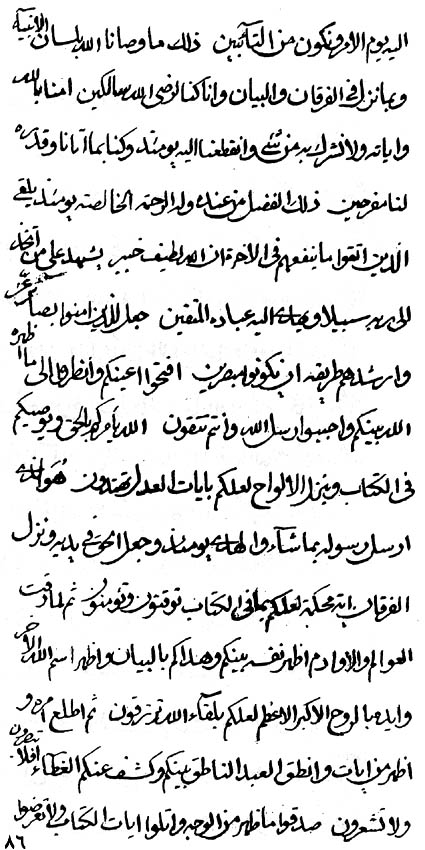 اليه يوم الامر ونكون من التائبين ذلك ما وصانا الله بلسان الانبياء
وبما نزل في الفرقان والبيان وانا كنا لرضى الله سالكين امنا بالله
واياته ولا نشرك به من شئ وانقطعنا اليه يومئذ وكنا بما اتانا وقدره
لنا مفرحين ذلك الفضل من عنده وله الرحمة الخالصة يومئذ يلقي
الذين اتقوا ما ينفعهم في الاخرة ان الله لطيف خبير يشهد على من اتخذ
الى ربه سبيلا ويهدي اليه عباده المتقين جعل للذين امنوا بصائر
وارشدهم طريقه ان يكونوا مبصرين افتحوا اعينكم وانظروا الى ما اظهره
الله بينكم واحبوا رسل الله وانتم تتقون الله يأمركم بالحق ويوصيكم
في الكتاب وينزل الالواح لعلكم بايات العدل تهتدون هو الذي
ارسل رسوله بما شاء والهدى يومئذ وجعل الحق في يديه ونزل
الفرقان اية محكمة لعلكم بما في الكتاب توقنون وتومنون ثم لما رقت
العوالم والاوادم اظهر نفسه بينكم وهداكم بالبيان واظهر اسم الله الاخر
وايده بالروح الاكبر الاعظم لعلكم بلقاء الله ترزقون ثم اطلع امره و
اظهر من ايات وانطق العبد الناطق بينكم وكشف عنكم الغطاء افلا تبصرون
ولا تشعرون صدقوا ما ظهر من الوجه واتلوا ايات الكتاب ولا تعرضوا
٨٦